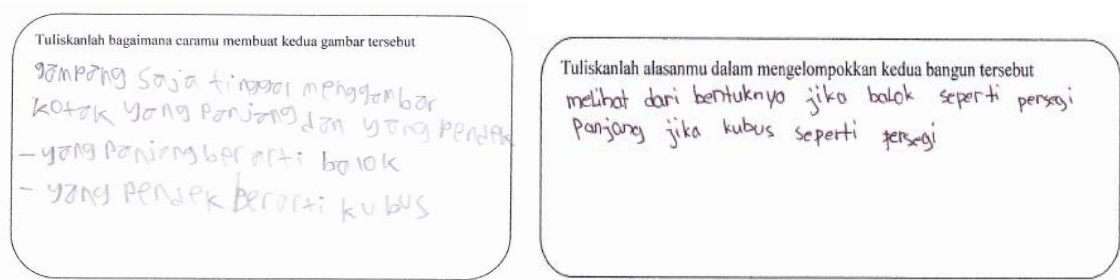 Tuliskanlah bagaimana caramu membuat kedua gambar tersebut
gampang saja tinggal menggambar
kotak yang panjang dan yang pendek
- yang panjang berarti balok
- yang pendek berarti kubus
Tuliskanlah alasanmu dalam mengelompokkan kedua bangun tersebut
melihat dari bentuknya jika balok seperti persegi
panjang jika kubus seperti persegi